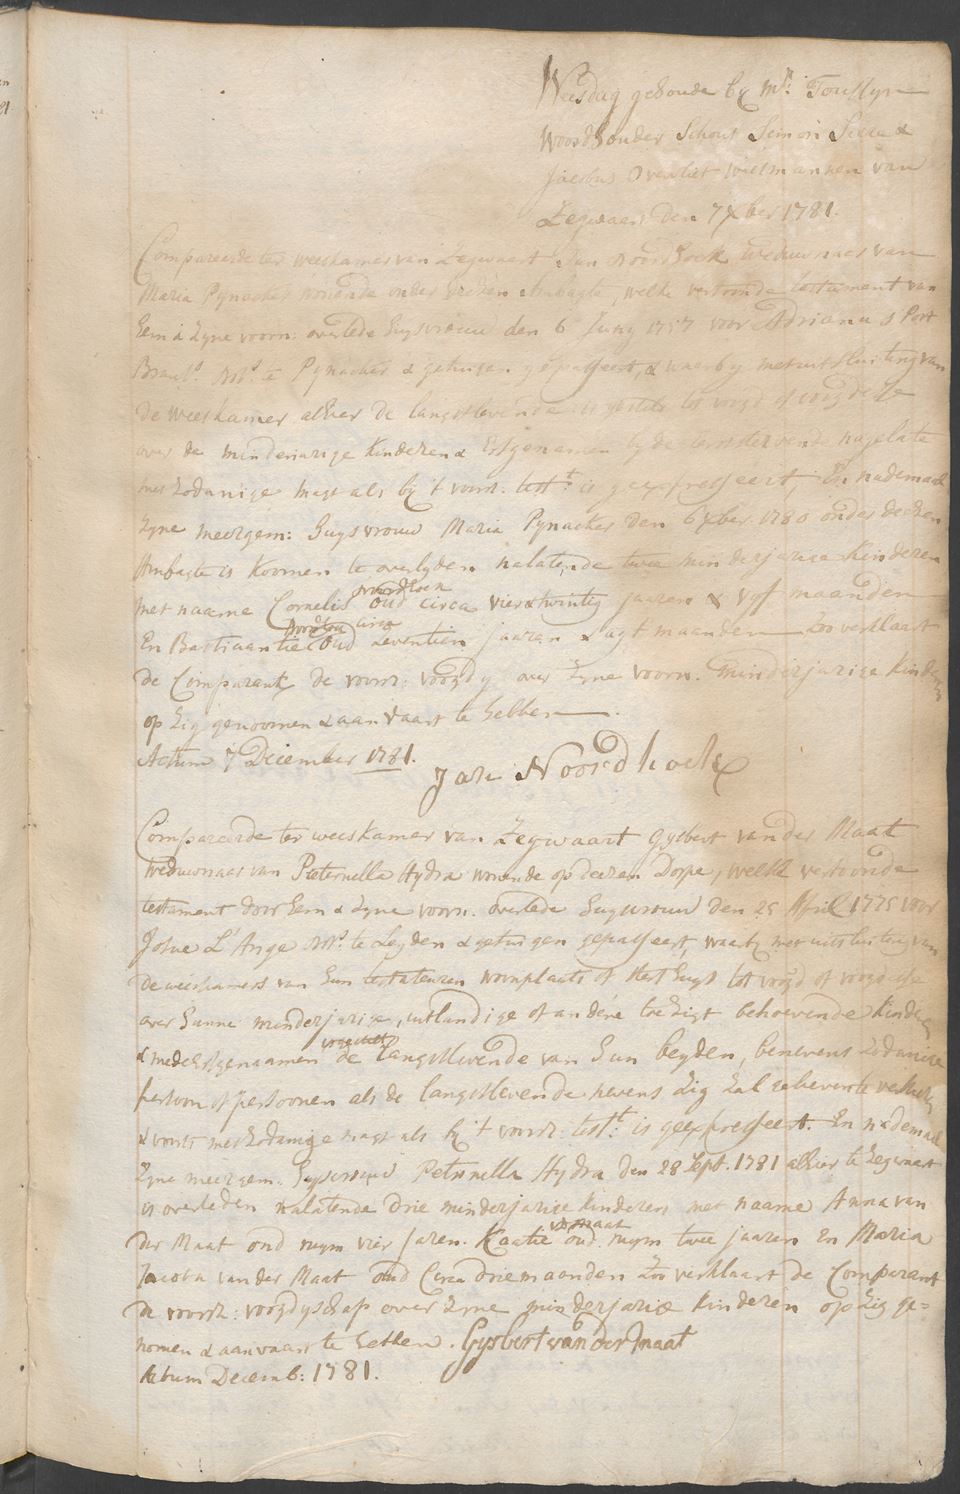 Weesdag gehoude by Mr: Toullyn
Noordhouder Schout Semon &
Jacobus Overvliet Weesmannen van
Zegwaart den 7 Xber 1781.
Compareerde ter weeskamer van Zegwaart Jan Noordhoek weduwnaar van
Maria Pynacker wonende onder deezen Ambagte, welke vertoonde testament van
hem & zyne voorn: overlede huysvrouw den 6 Juny 1757 voor Adrianus Port
Not: te Pynacker & getuigen gepasseert, & waerby met uitsluiting van
de weeskamer alhier de langstlevende is gestelt tot voogd of voogdesse
over de minderjarige kinderen & Erfgenamen by de eerststervende nagelate
met zodanige magt als by 't voorz: testt: is geexpresseert, En nademaal
zyne meergem: huysvrouw Maria Pynacker den 6 Xber 1780 onder deezen
Ambagte is koomen te overlyden nalatende twee minderjarige kinderen
met naame Cornelis Noordhoek oud circa vier & twintig jaaren & vyf maanden
En Bastiaantie Noordhoek oud circa zeventien jaaren & agt maanden Zoo verklaart
de Comparant de voorz: voogdy over zyne voorn: minderjarige kinderen
op zig genoomen & aanvaart te hebben.
Actum 7 December 1781.
Jan Noordhoek
Compareerde ter weeskamer van Zegwaart Gysbert van der Maat
weduwnaar van Pieternella Hydra wonende op deezen Dorpe, welke vertoonde
testament door hem & zyne voorn: overlede huysvrouw den 25 April 1775 voor
Josue L'Ange Not: te Leyden & getuigen gepasseert, waarby met uitsluiting van
de weeskamers van hun testateuren woonplaats of sterfhuys tot voogd of voogdesse
over hunne minderjarige, uitlandige of andere toezigt behoevende kinderen
& mede Erfgenaamen de langstlevende van hun beyden, benevens zodanige
persoon of persoonen als de langstlevende nevens zig zal gelieven te verkiezen
& voorts met zodanige magt als by 't voorz: testt: is geexpresseert. En nademaal
zyne meergem: huysvrouw Petronella Hydra den 28 Sept. 1781 alhier te Zegwaart
is overleden nalatende drie minderjarige kinderen met naame Anna van
der Maat oud ruym vier jaren. Kaatie vd Maat oud ruym twee jaaren En Maria
Jacoba van der Maat oud Circa drie maanden Zoo verklaart de Comparant
de voorz: voogdyschap over zyne minderjarige kinderen op zig ge=
nomen & aanvaart te hebben. Gysbert van der Maat
Actum Decemb: 1781.